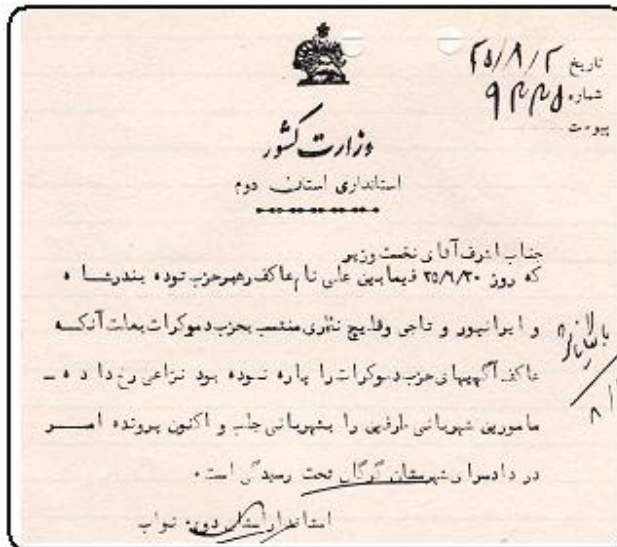 تاریخ ۲۵/۸/۲
شماره ۹۳۳۵
پیوست
وزارت کشور
استانداری استان دوم
جناب اشرف آقای نخست وزیر
که روز ۲۵/۶/۳۰ فیمابین علی نام عاکف رهبر حزب توده بندر شاه
و ایرانپور و تاجی وقلیچ نظری منتسب بحزب دموکرات بعلت آنکه
عاکف آگهیهای حزب دموکرات را پاره نموده بود نزاعی رخ داده
مامورین شهربانی طرفین را بشهربانی جلب و اکنون پرونده امر
در دادسرای شهرستان گرگان تحت رسیدگی است.
استاندار استان دوم. نواب